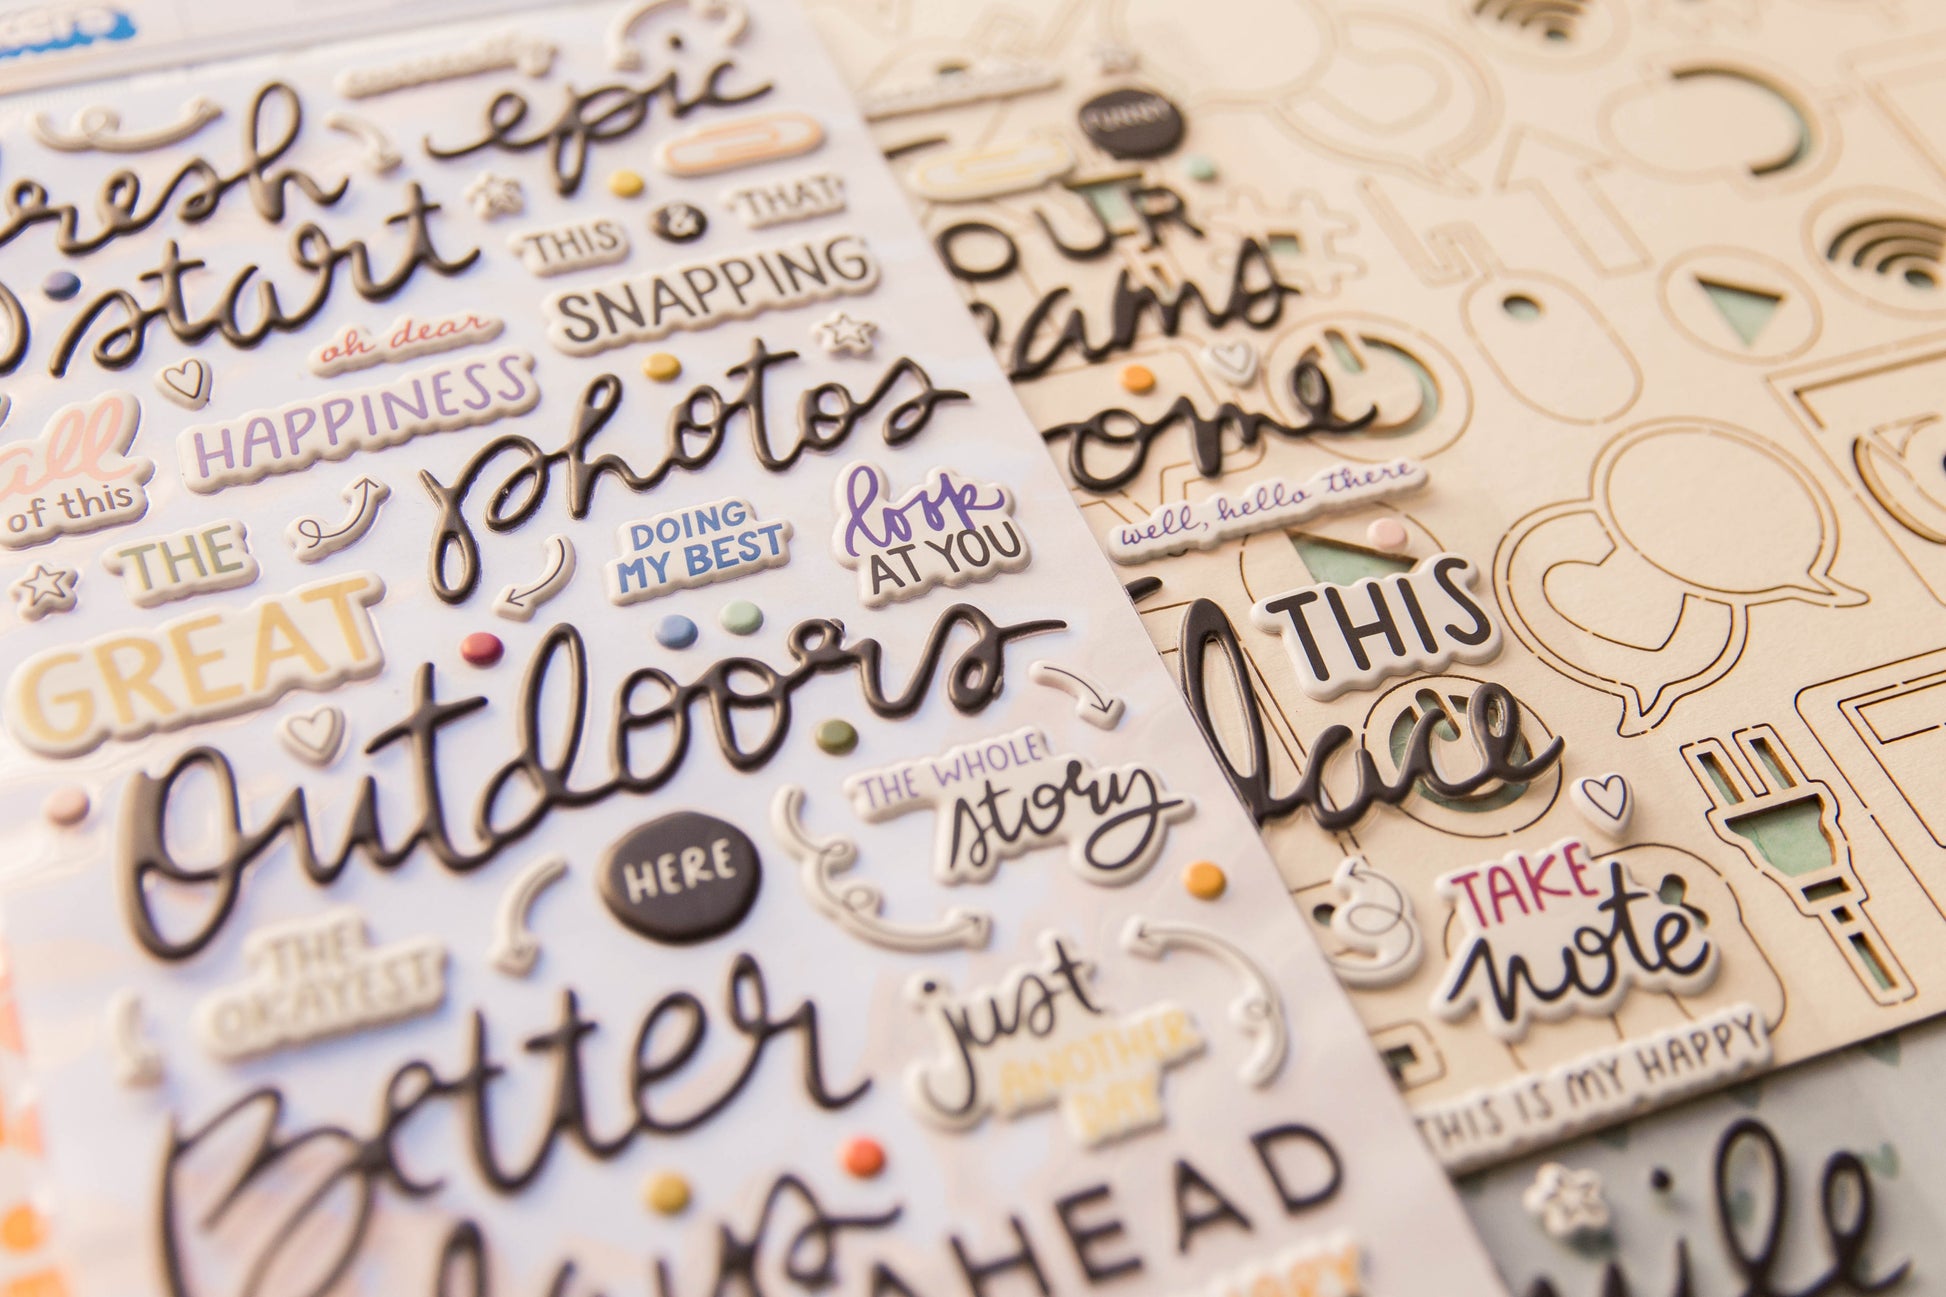 epic
fresh
start
THIS
&
THAT
SNAPPING
oh dear
HAPPINESS
photos
all
of this
THE
GREAT
DOING
MY BEST
look
AT YOU
outdoors
THE WHOLE
story
HERE
THE
OKAYEST
Better
just
ANOTHER
DAY
days
AHEAD
FUNNY
OUR
well, hello there
THIS
TAKE
note
THIS IS MY HAPPY